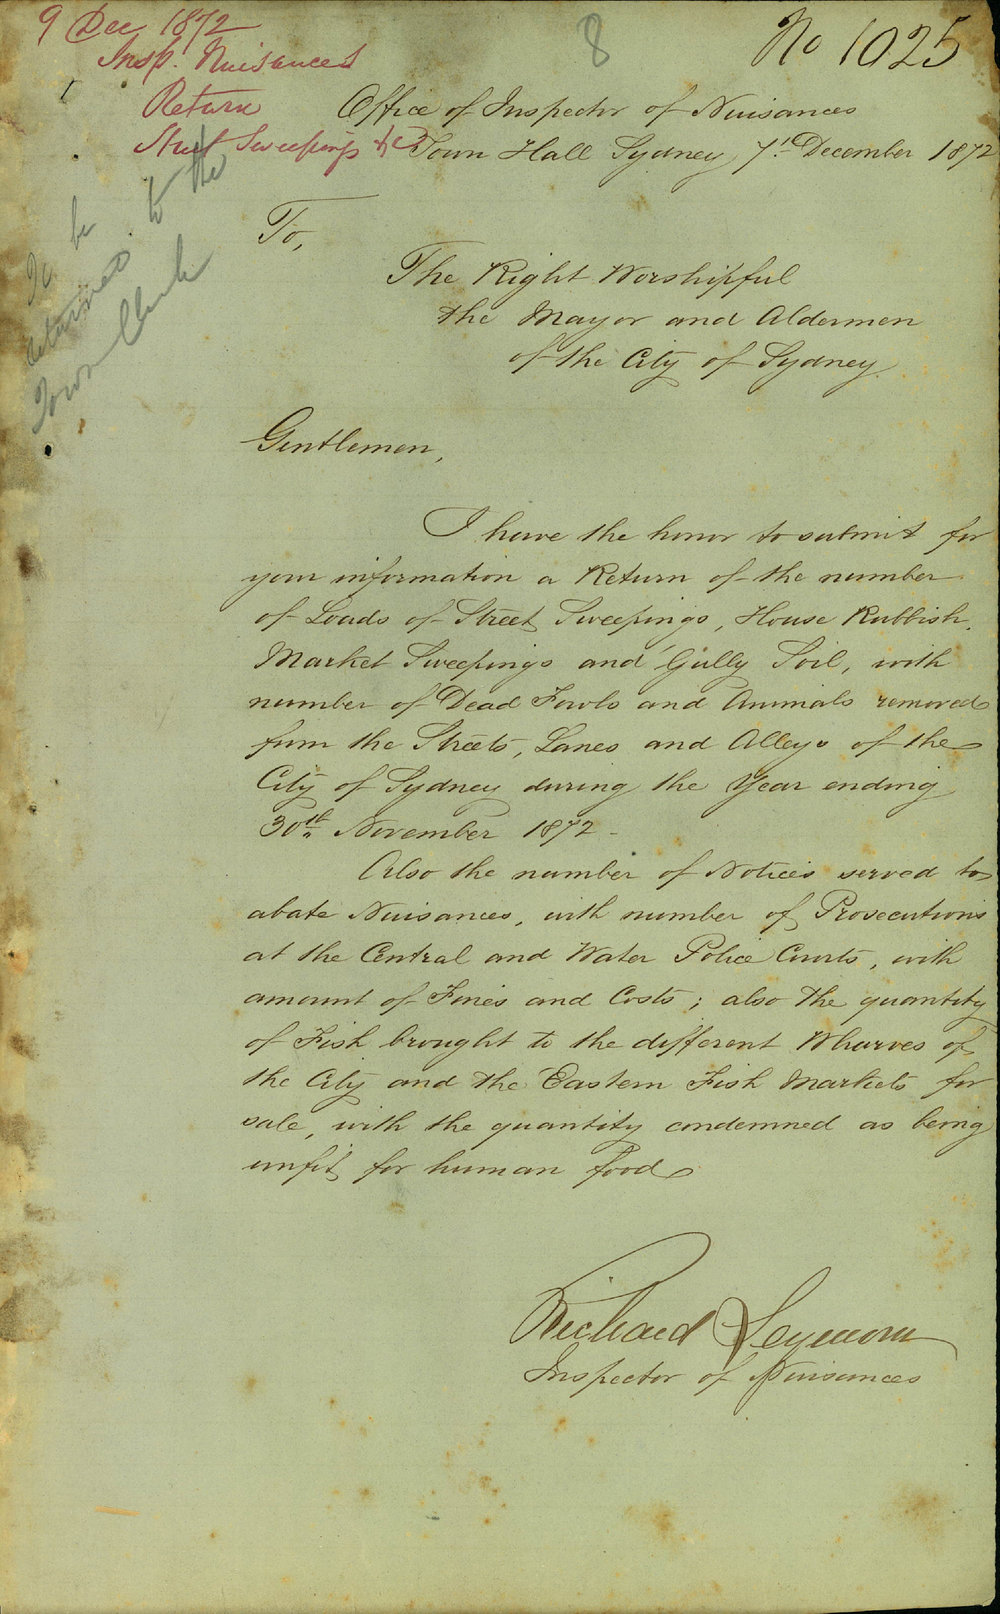 9 Dec 1872
Insp. Nuisances
Return
Street Sweepings &c
8
No 1025
To be
returned to the
Town Clerk
Office of Inspector of Nuisances
Town Hall Sydney, 7th December 1872
To,
The Right Worshipful
the Mayor and Aldermen
of the City of Sydney.
Gentlemen,
I have the honor to submit for
your information a Return of the number
of Loads of Street Sweepings, House Rubbish,
Market Sweepings and Gully Soil, with
number of Dead Fowls and Animals removed
from the Streets, Lanes and Alleys of the
City of Sydney during the Year ending
30th November 1872 -
Also the number of Notices served to
abate Nuisances, with number of Prosecutions
at the Central and Water Police Courts, with
amount of Fines and Costs; also the quantity
of Fish brought to the different Wharves of
the City and the Eastern Fish Markets for
sale, with the quantity condemned as being
unfit for human food
Richard Seymour
Inspector of Nuisances